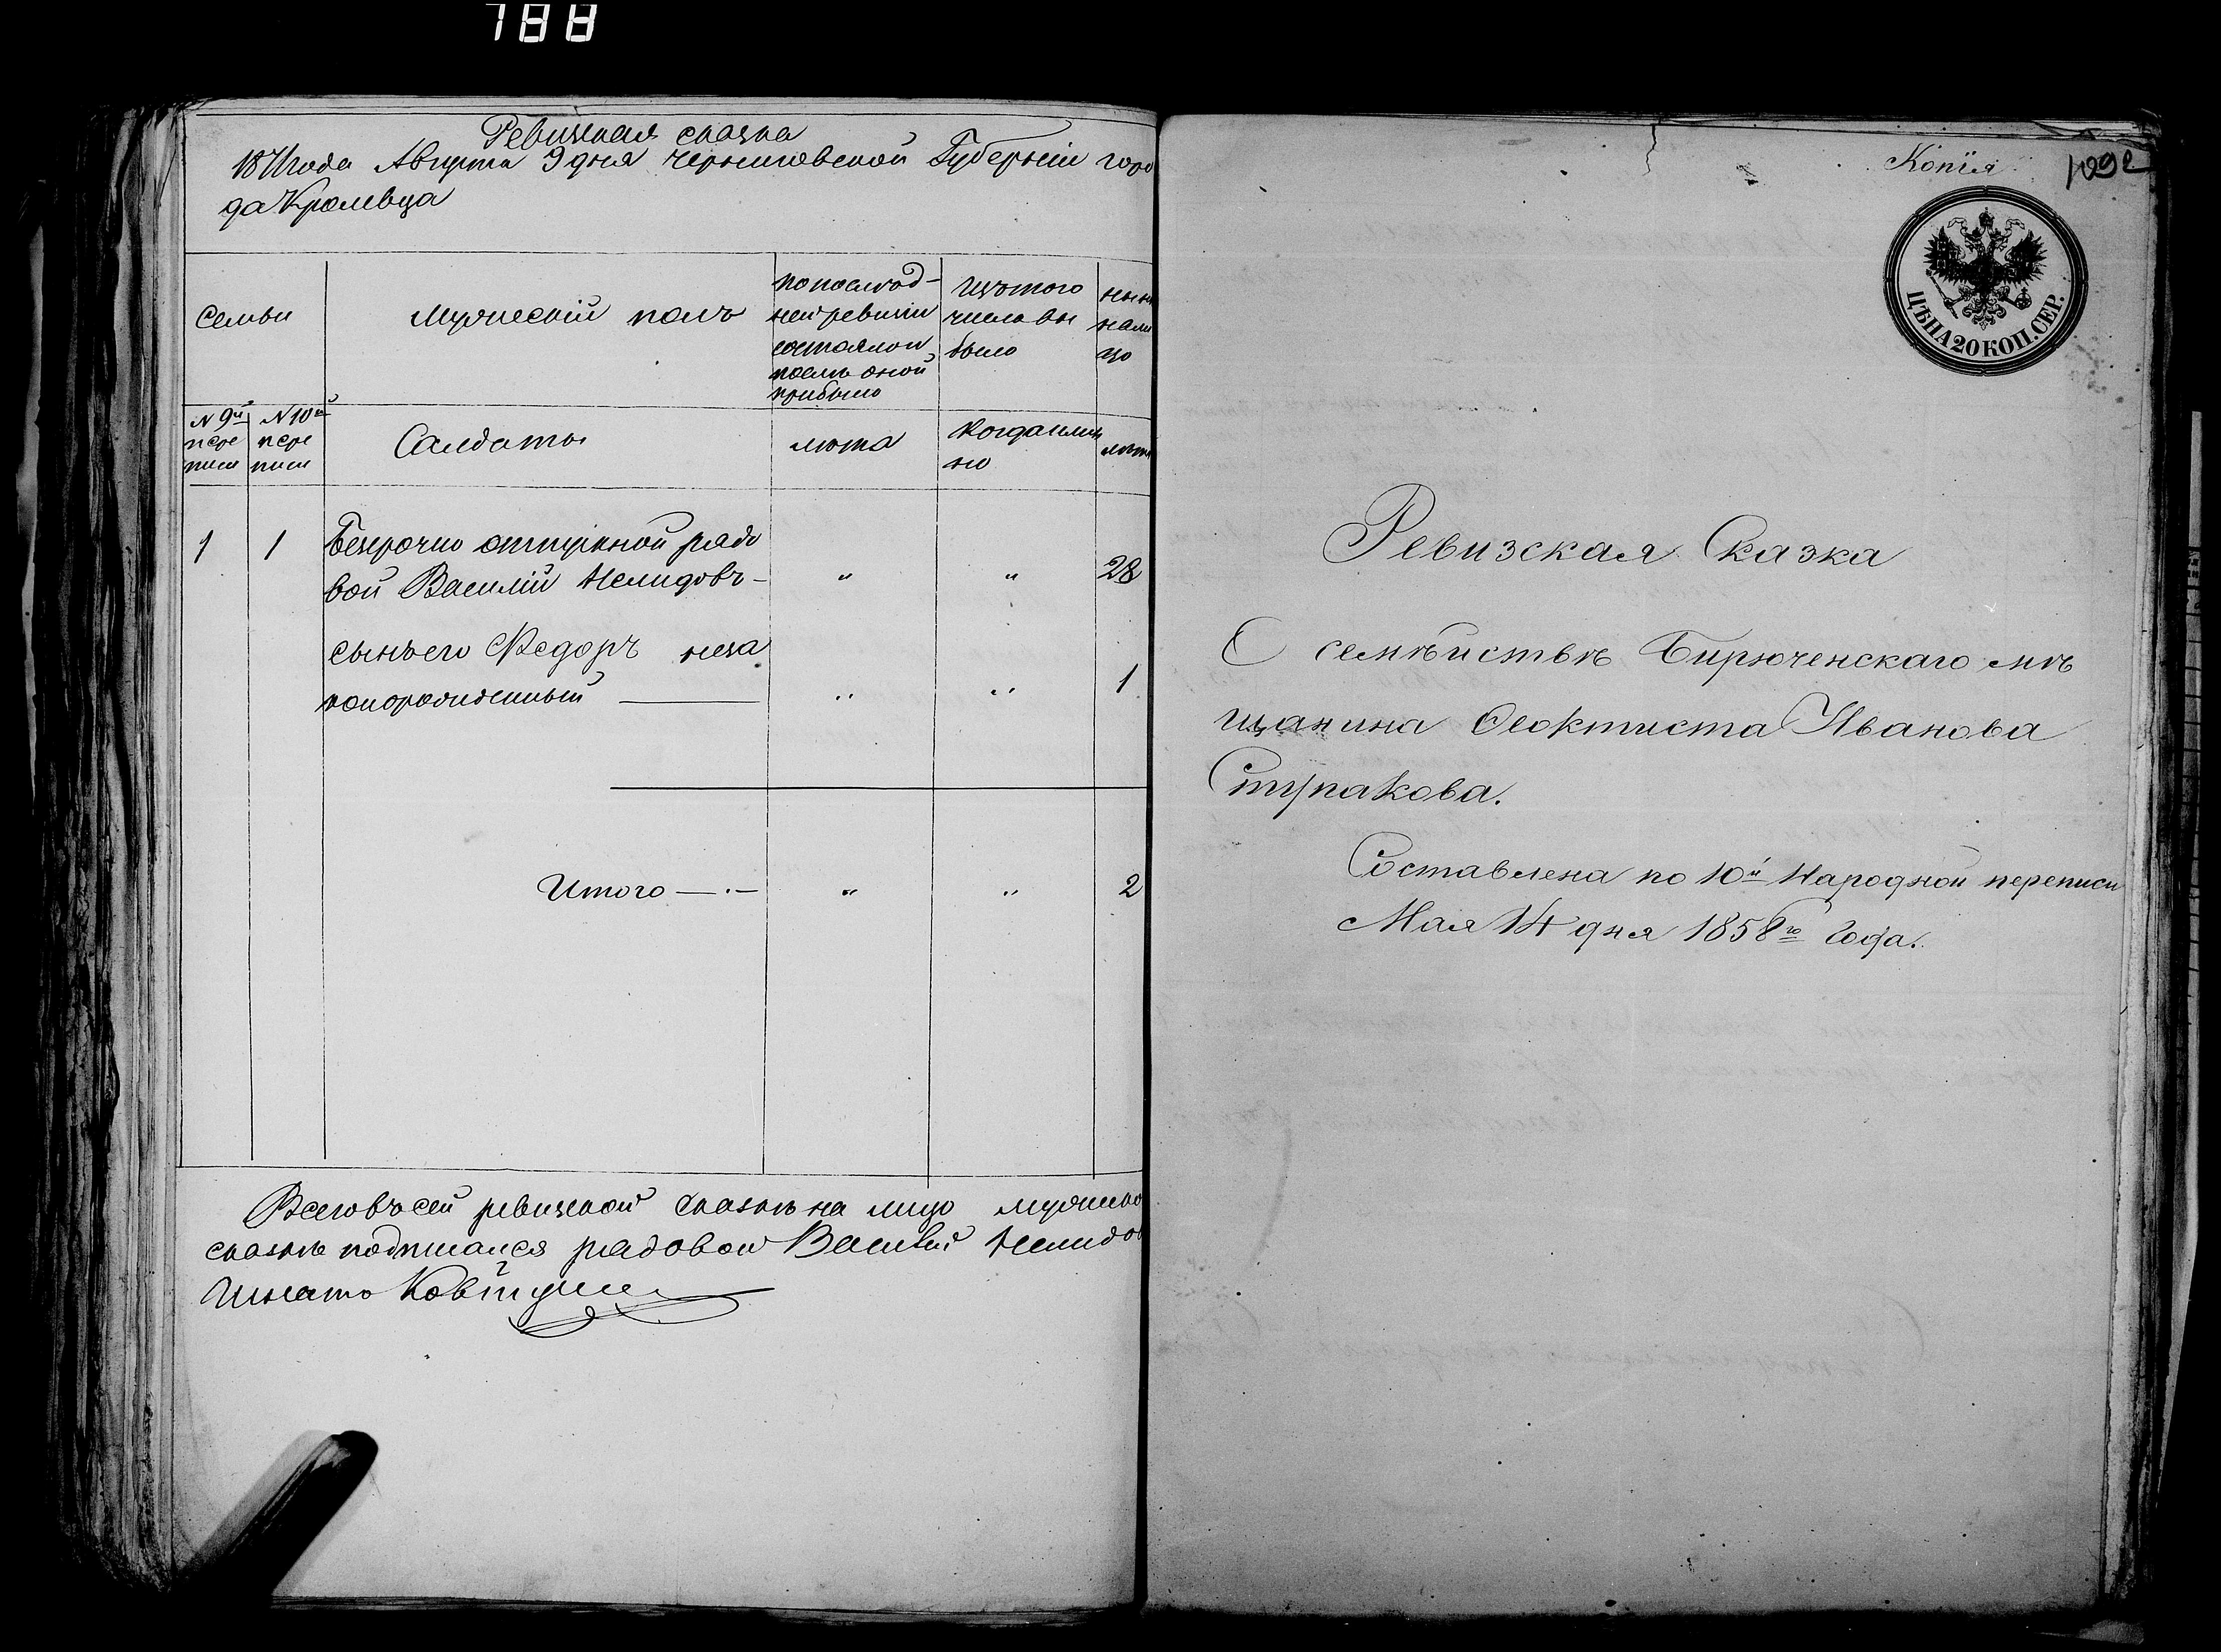 788
Ревизская сказка
1871 года Августа 9 дня Черниговской Губерніи горо
да Кролевца
Семьи
Мужескій полъ
по послѣд-
ней ревизіи
состояло и
послѣ оной
прибыло
Изъ того
числа вы
было
нынѣ
нали
цо
№ 9й
пере
писи
№ 10й
пере
писи
Солдаты
лѣта
Когда имян
но
лѣта
1 1 Безсрочно отпускной рядо
вой Василій Нелидовъ — " " 28
сынъ его Федоръ неза
коннорожденный — " " 1
Итого — " " 2
Всего въ сей ревизской сказкѣ на лицо мужеска
сказкѣ подписался рядовой Василій Нелидов
Игнатъ
Копія 1092
ЦѢНА 20 КОП. СЕР.
Ревизская Сказка
О семѣйствѣ Бирюченскаго мѣ
щанина Ѳеоктиста Иванова
Ступакова.
Составлена по 10й Народной переписи
Мая 14 дня 1858го Года.